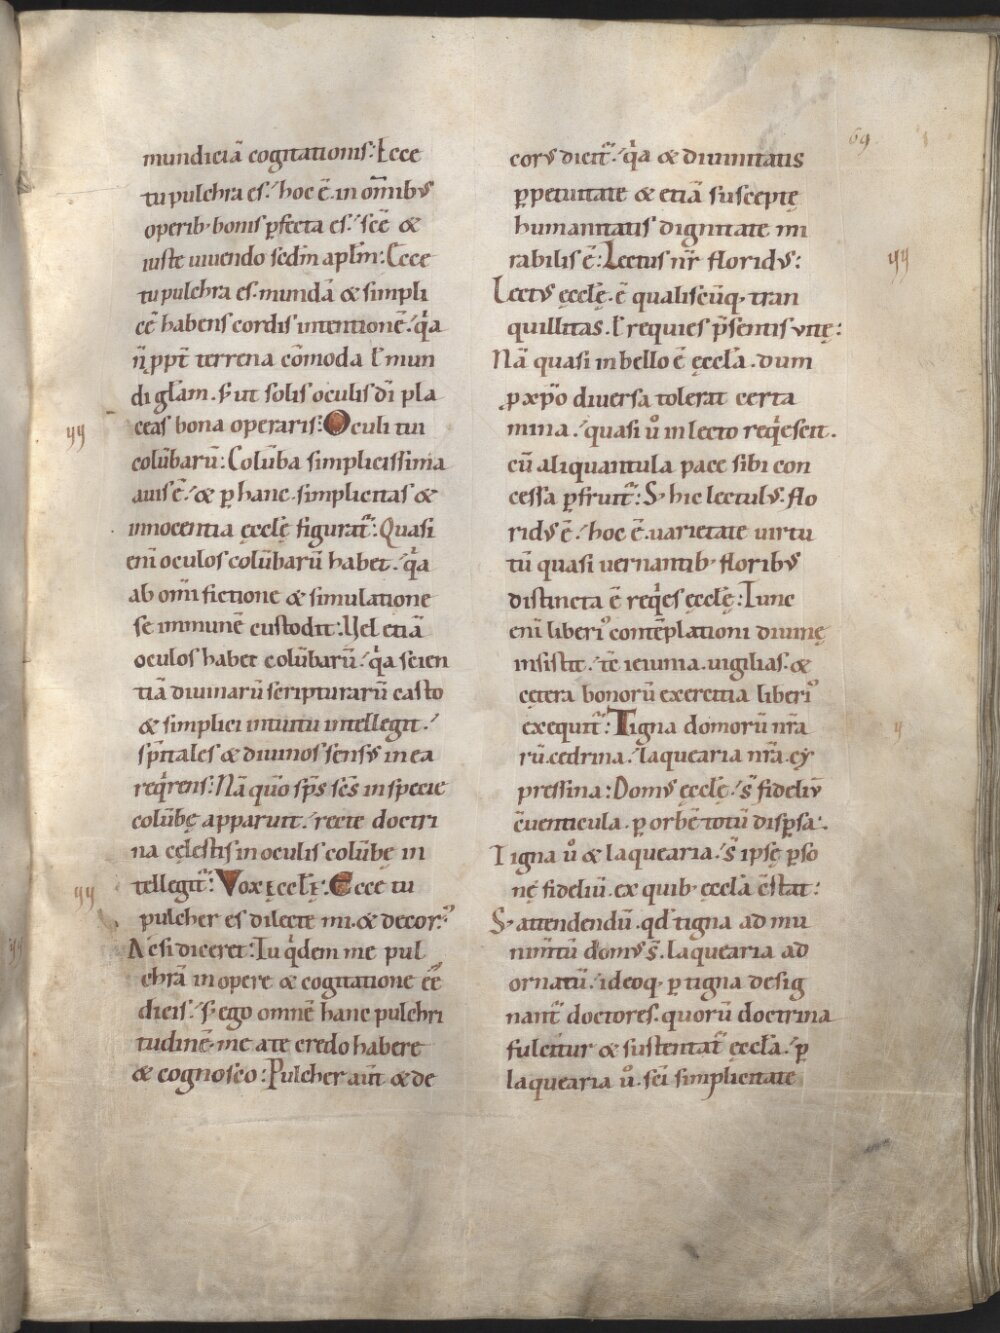 mundiciā cogitationis: Ecce
tu pulchra es. hoc ē. in om̄ibꝰ
operib· bonis ꝑfecta es. scē &
iuste uiuendo scdm apłm: Ecce
tu pulchra es. mundā & simpli
cē habens cordis intentionē. q̇a
n̄ ꝓpt̄ terrena cōmoda ł mun
di głam. s; ut solis oculis dī pla
ceas bona operaris: Oculi tui
yy
colūbarū: Colūba simplicissima
auis ē. & ꝑ hanc simplicitas &
innocentia ęcclę figurat̄: Quasi
enī oculos colūbarū habet. q̇a
ab om̄i fictione & simulatione
se immunē custodit: Vel etiā
oculos habet colūbarū. q̇a scien
tiā diuinarū scripturarū casto
& simplici intuitu intellegit.
sp̄itales & diuinos sensꝰ in ea
req̇rens: Nā quō sp̄s sc̄s in specie
colūbę apparuit. recte doctri
na cęlestis in oculis colūbę in
tellegit̄: Vox ęccłę: Ecce tu
yy
pulcher es dilecte mi. & decorꝰ:
Ac si diceret: Tu q̇dem me pul
chrā in opere & cogitatione ēē
dicis. s; ego omnē hanc pulchri
tudinē me a te credo habere
& cognosco: Pulcher aūt & de
69
corꝰ dicit̄. q̇a & diuinitatis
ꝑpetuitate & etiā susceptę
humanitatis dignitate mi
rabilis ē: Lectus nr̄ floridꝰ:
yy
Lectꝰ ęcclę. ē qualiscūq; tran
quillitas. ł requies p̄sentis uitę:
Nā quasi in bello ē ęccła. dum
ꝓ xp̄o diuersa tolerat certa
mina. quasi u̇ in lecto req̇escit.
cū aliquantula pace sibi con
cessa ꝑfruit̄: S; hic lectulꝰ flo
ridꝰ ē. hoc ē. uarietate uirtu
tū quasi uernantib· floribꝰ
distincta ē req̇es ęcclę: Tunc
enī liberiꝰ contēplationi diuinę
insistit. tc̄ ieiunia. uigilias. &
cętera bonorū exercitia liberiꝰ
exequit̄: Tigna domorū nr̄a
y
rū cedrina. laquearia nr̄a cy
pressina: Domꝰ ęcclę. s̄ fideliū
cūenticula. ꝑ orbē totū dispersa:
Tigna u̇ & laquearia. s̄ ipsę ꝑso
nę fideliū. ex quib· ęccła cstat:
S; attendendū. qd̄ tigna ad mu
nim̄tū domꝰ s̄. laquearia ad
ornatū. ideoq; ꝑ tigna desig
nant̄ doctores. quorū doctrina
fulcitur & sustentat̄ ęccła. ꝑ
laquearia u̇. sci simplicitate